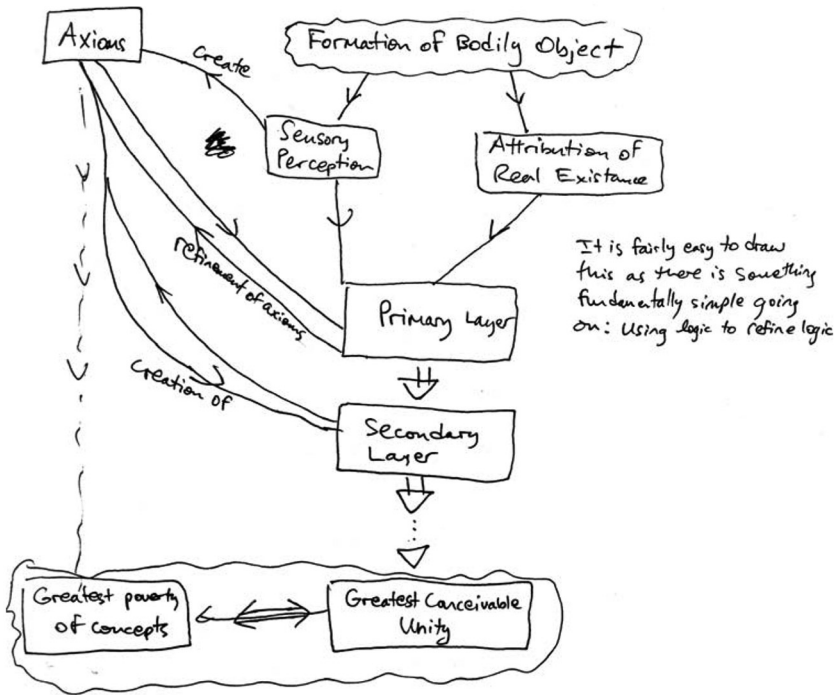 Axioms
create
Formation of Bodily Object
Sensory
Perception
Attribution of
Real Existance
refinement of axioms
It is fairly easy to draw
this as there is something
fundamentally simple going
on: Using logic to refine logic
Primary Layer
creation of
Secondary
Layer
Greatest poverty
of concepts
Greatest Conceivable
Unity